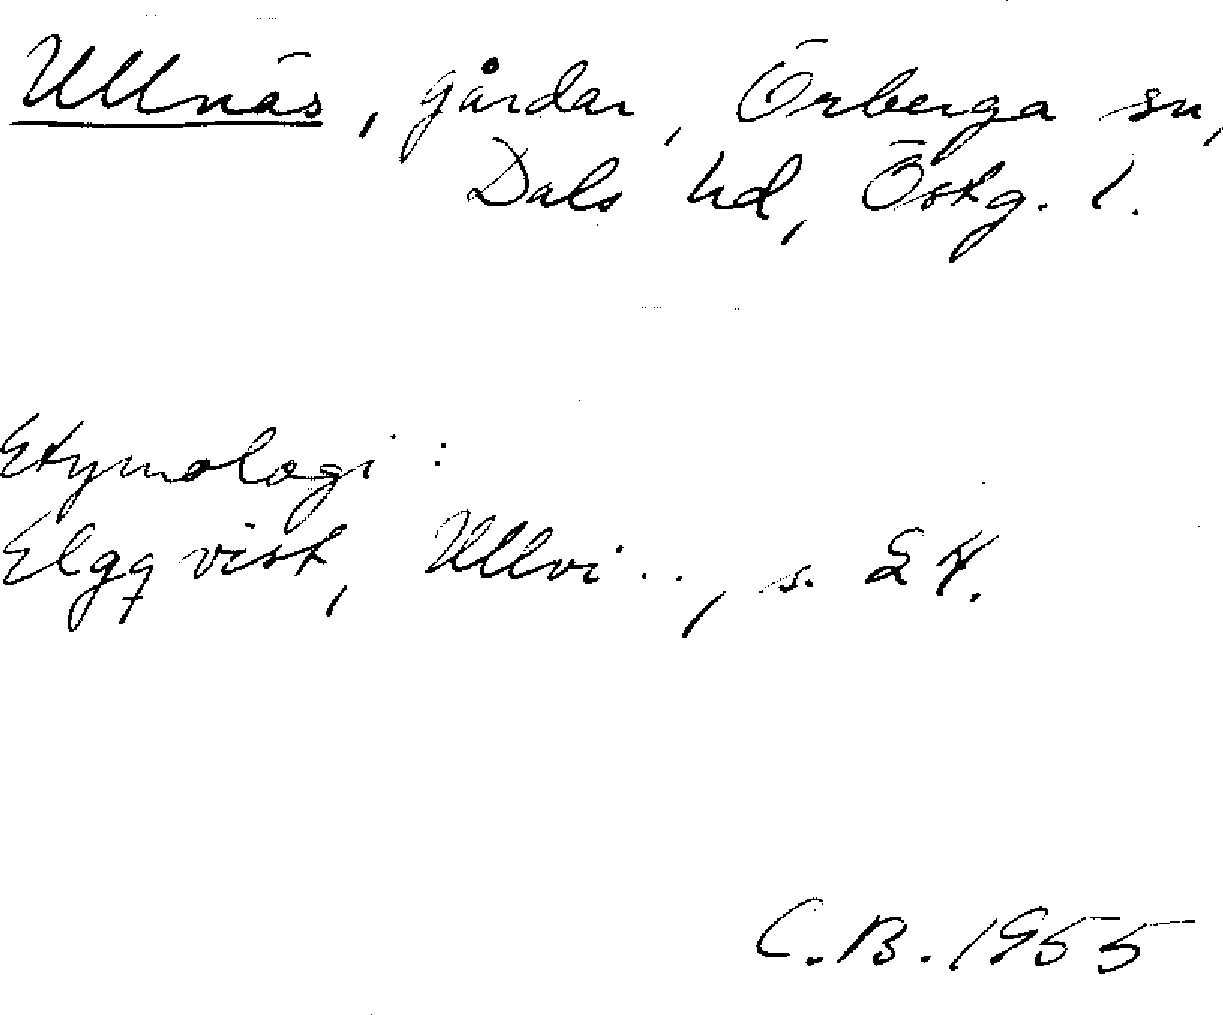 Ullnäs, gårdar, Örberga sn,
Dals hd, Östg. l.
Etymologi:
Elgqvist, Ullvi.., s. 24.
C.B. 1955